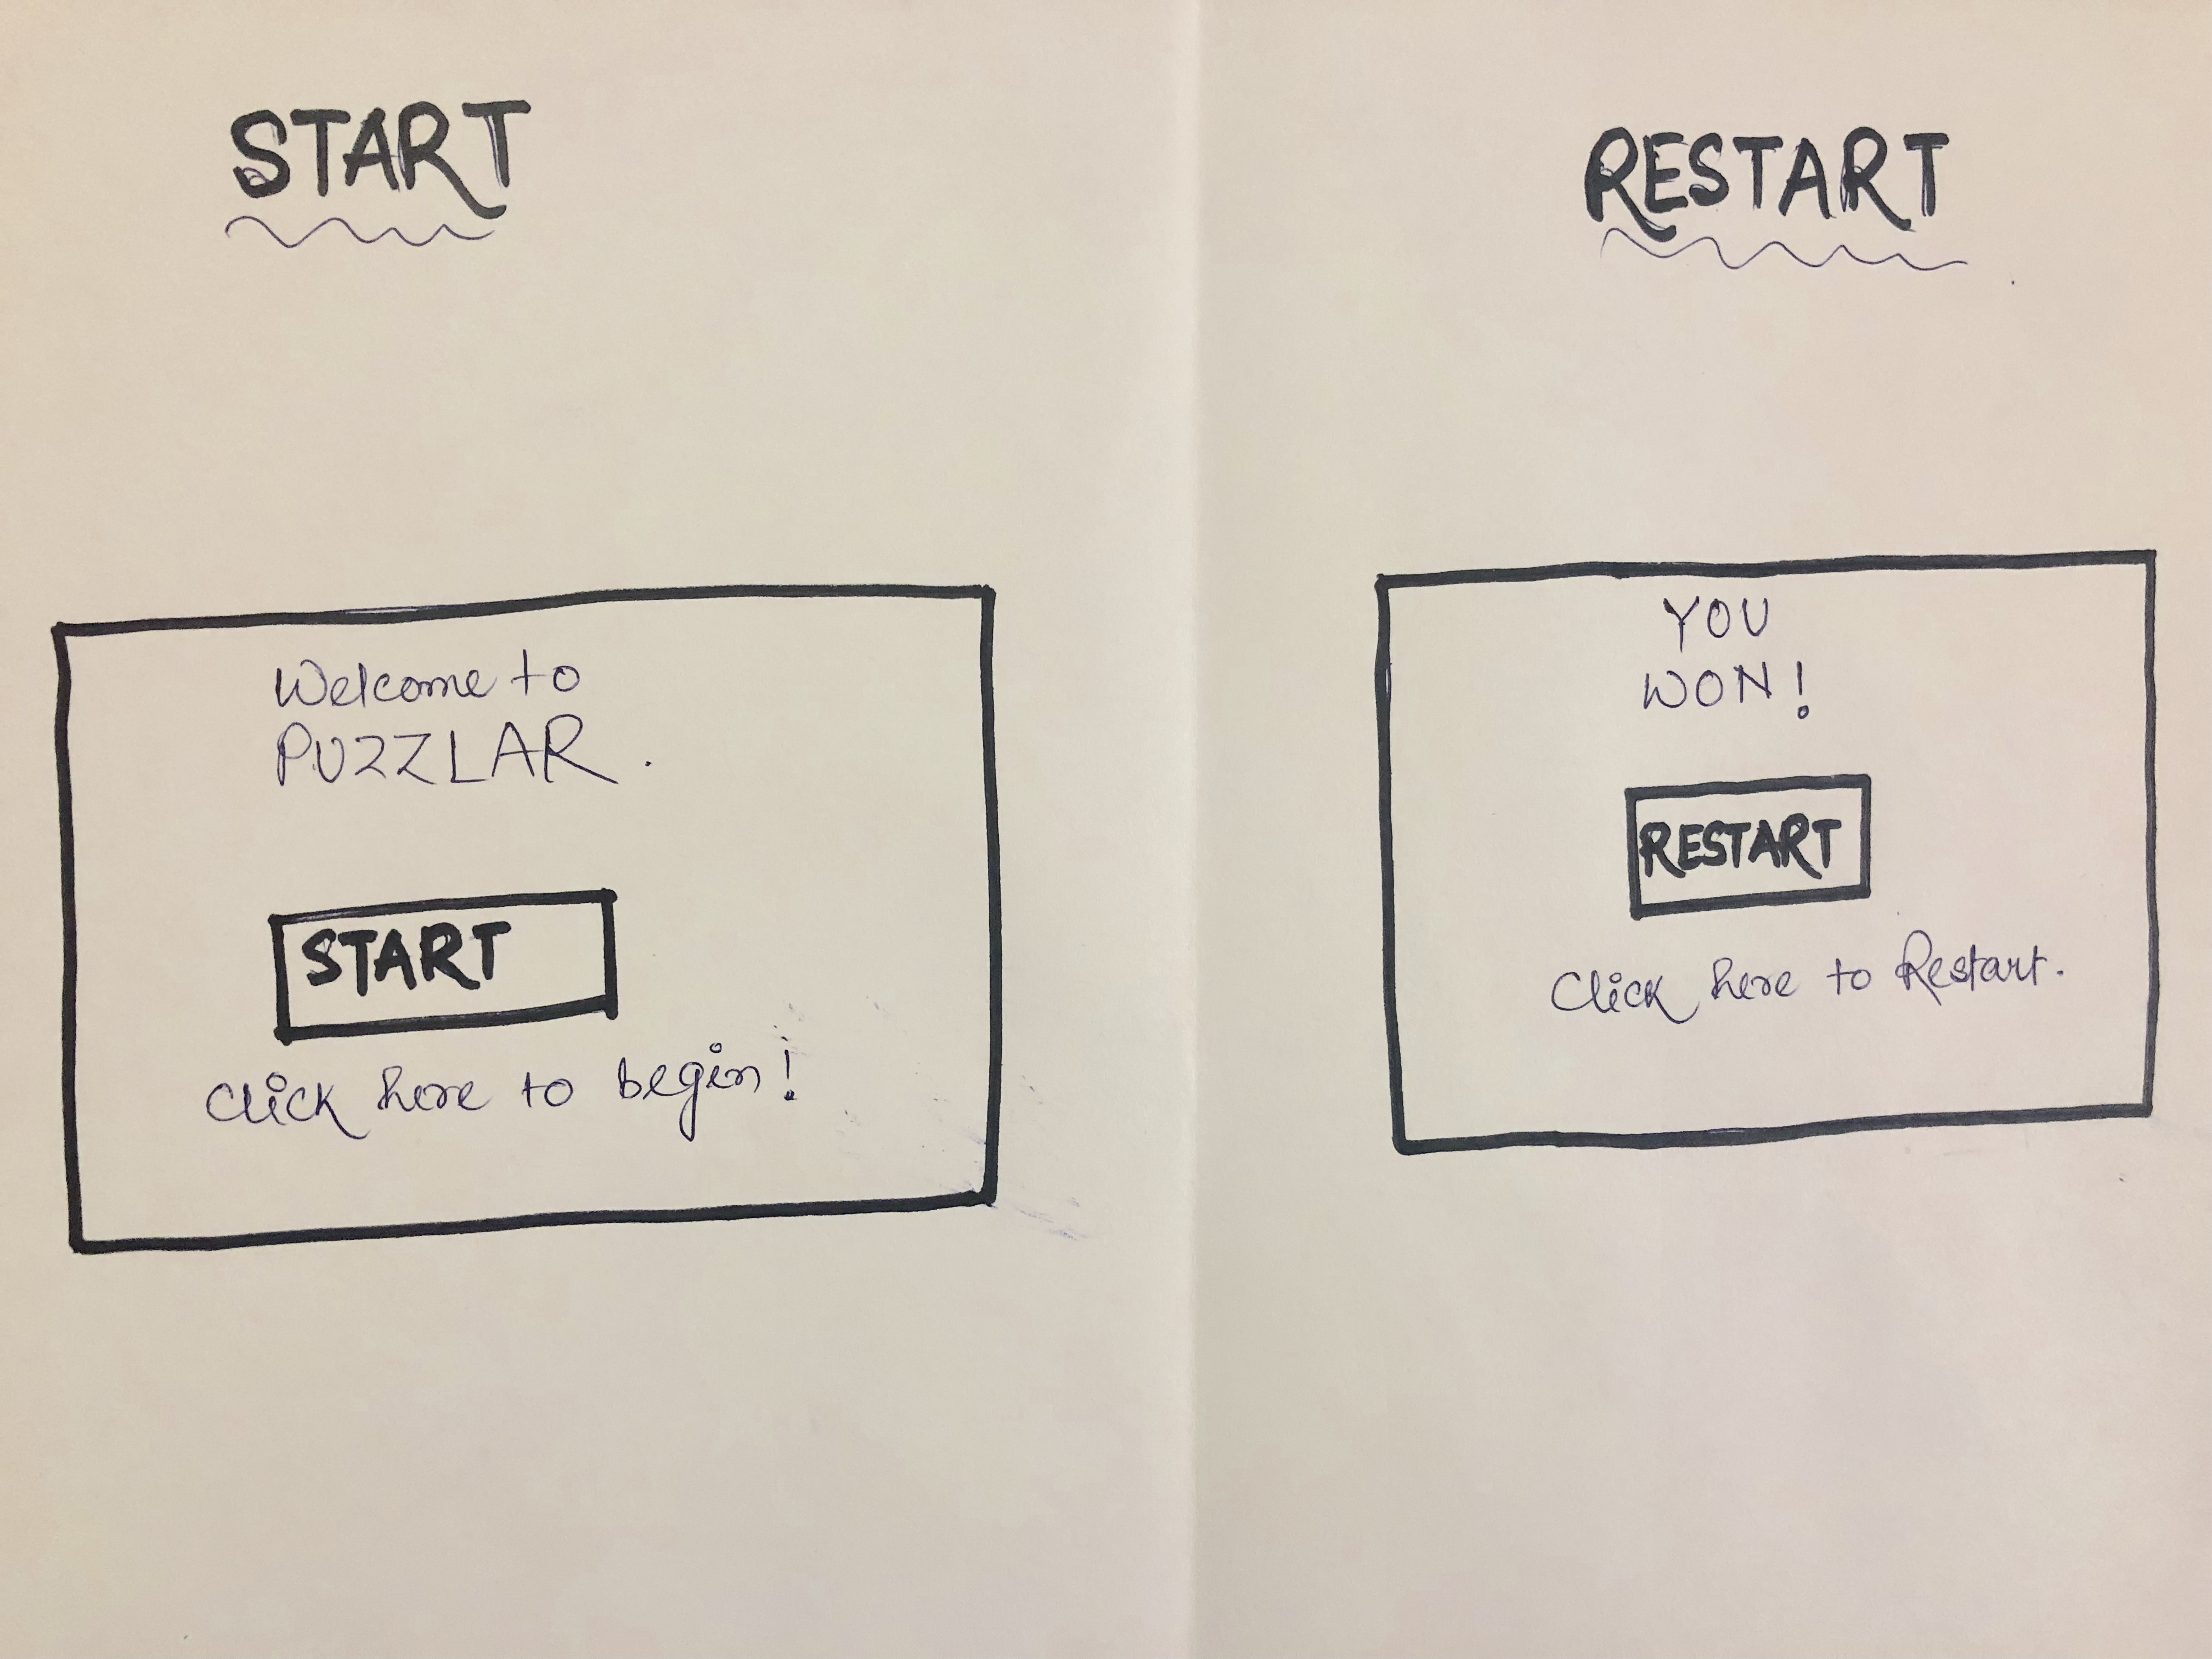 START
Welcome to
PUZZLAR.
START
Click here to begin!
RESTART
YOU
WON!
RESTART
Click here to Restart.